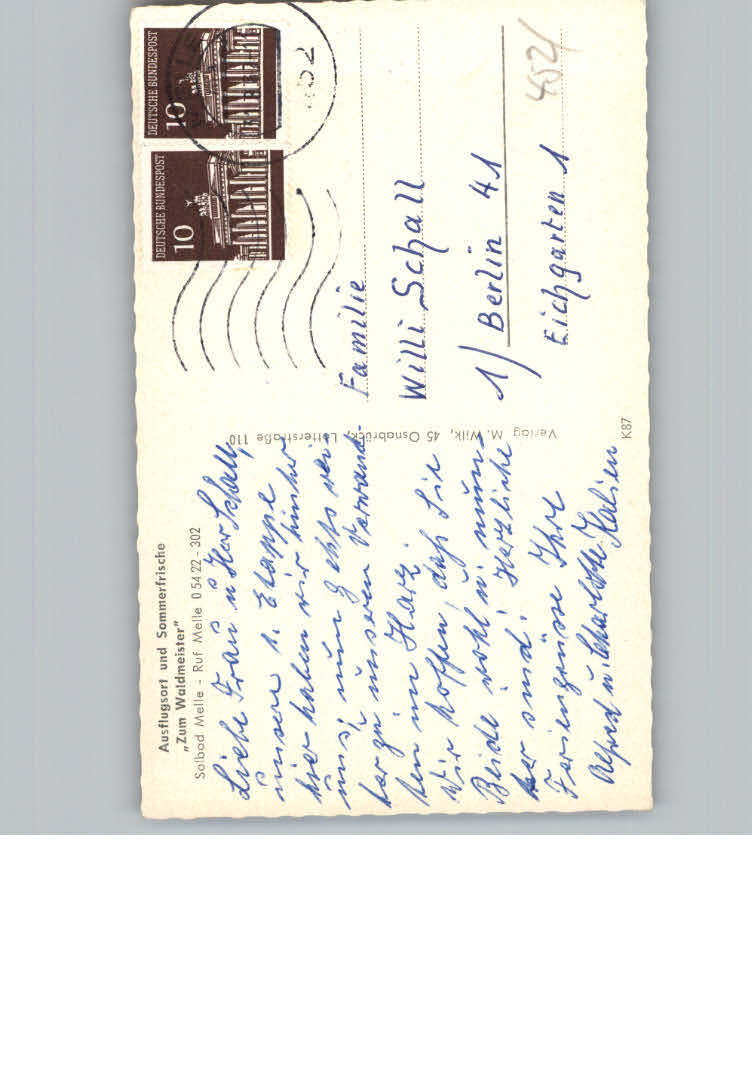 Ausflugsort und Sommerfrische
„Zum Waldmeister"
Solbad Melle - Ruf Melle 0 54 22 - 302
Liebe Frau u. Herr Schall,
unsere 1. Etappe
hier haben wir hinter
uns, nun gehts wei-
ter zu unseren Verwand-
ten im Harz.
Wir hoffen, daß Sie
Beide wohl u. mun-
ter sind. Herzliche
Feriengrüsse Ihre
Alfred u. Charlotte
Verlag M. Wilk, 45 Osnabrück, Lotterstraße 110
K87
DEUTSCHE BUNDESPOST
10
DEUTSCHE BUNDESPOST
10
Familie
Willi Schall
1) Berlin 41
Eichgarten 1
452/